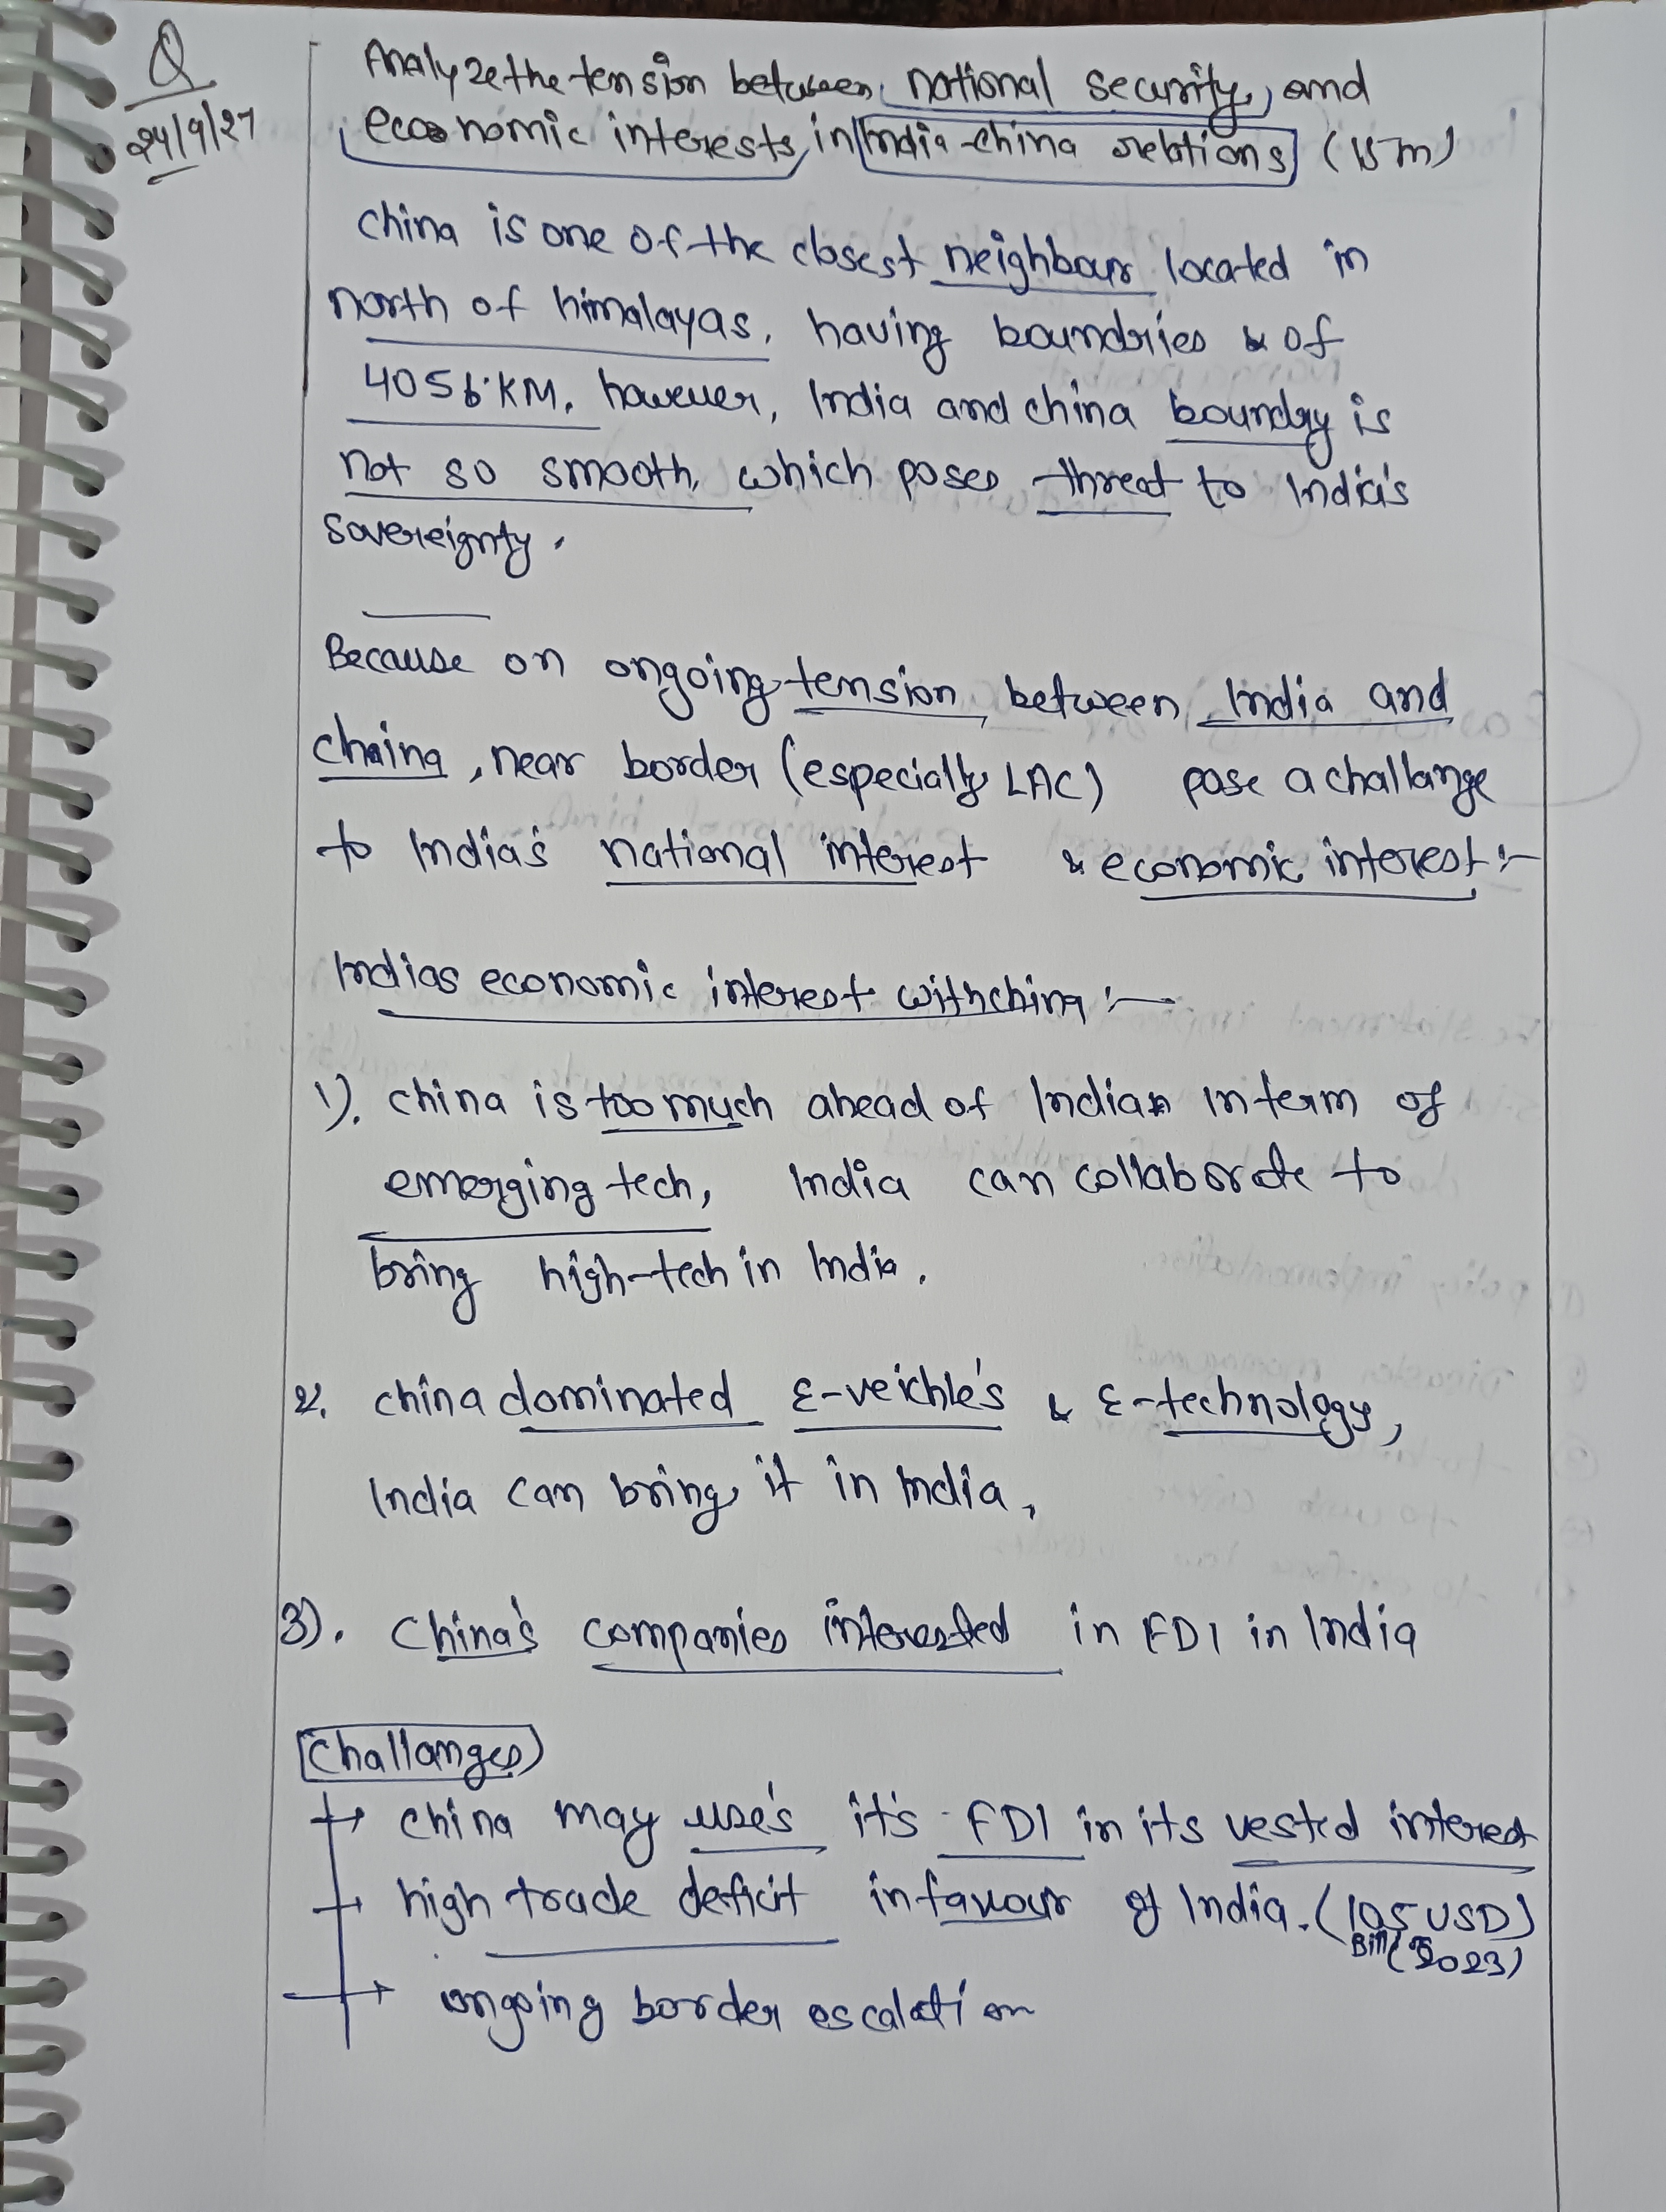 Q
24/9/27
Analyze the tension between national security, and
economic interests, in India-china relations (15m)
China is one of the closest neighbour located in
north of himalayas, having boundries & of
4056 KM. however, India and china boundry is
not so smooth, which poses threat to India's
sovereignty.
Because on ongoing tension, between India and
china, near border (especially LAC) pose a challange
to India's national interest & economic interest:-
Indias economic interest with china:-
1). China is too much ahead of Indian in term of
emerging tech, India can collaborate to
bring high-tech in India.
2. China dominated E-veichle's & E-technology,
India can bring it in India,
3). China's companies interested in FDI in India
Challanges
→ china may use's it's FDI in its vested interest
→ high trade deficit in favour of India. (105 USD)
Bill (2023)
→ ongoing border escalation